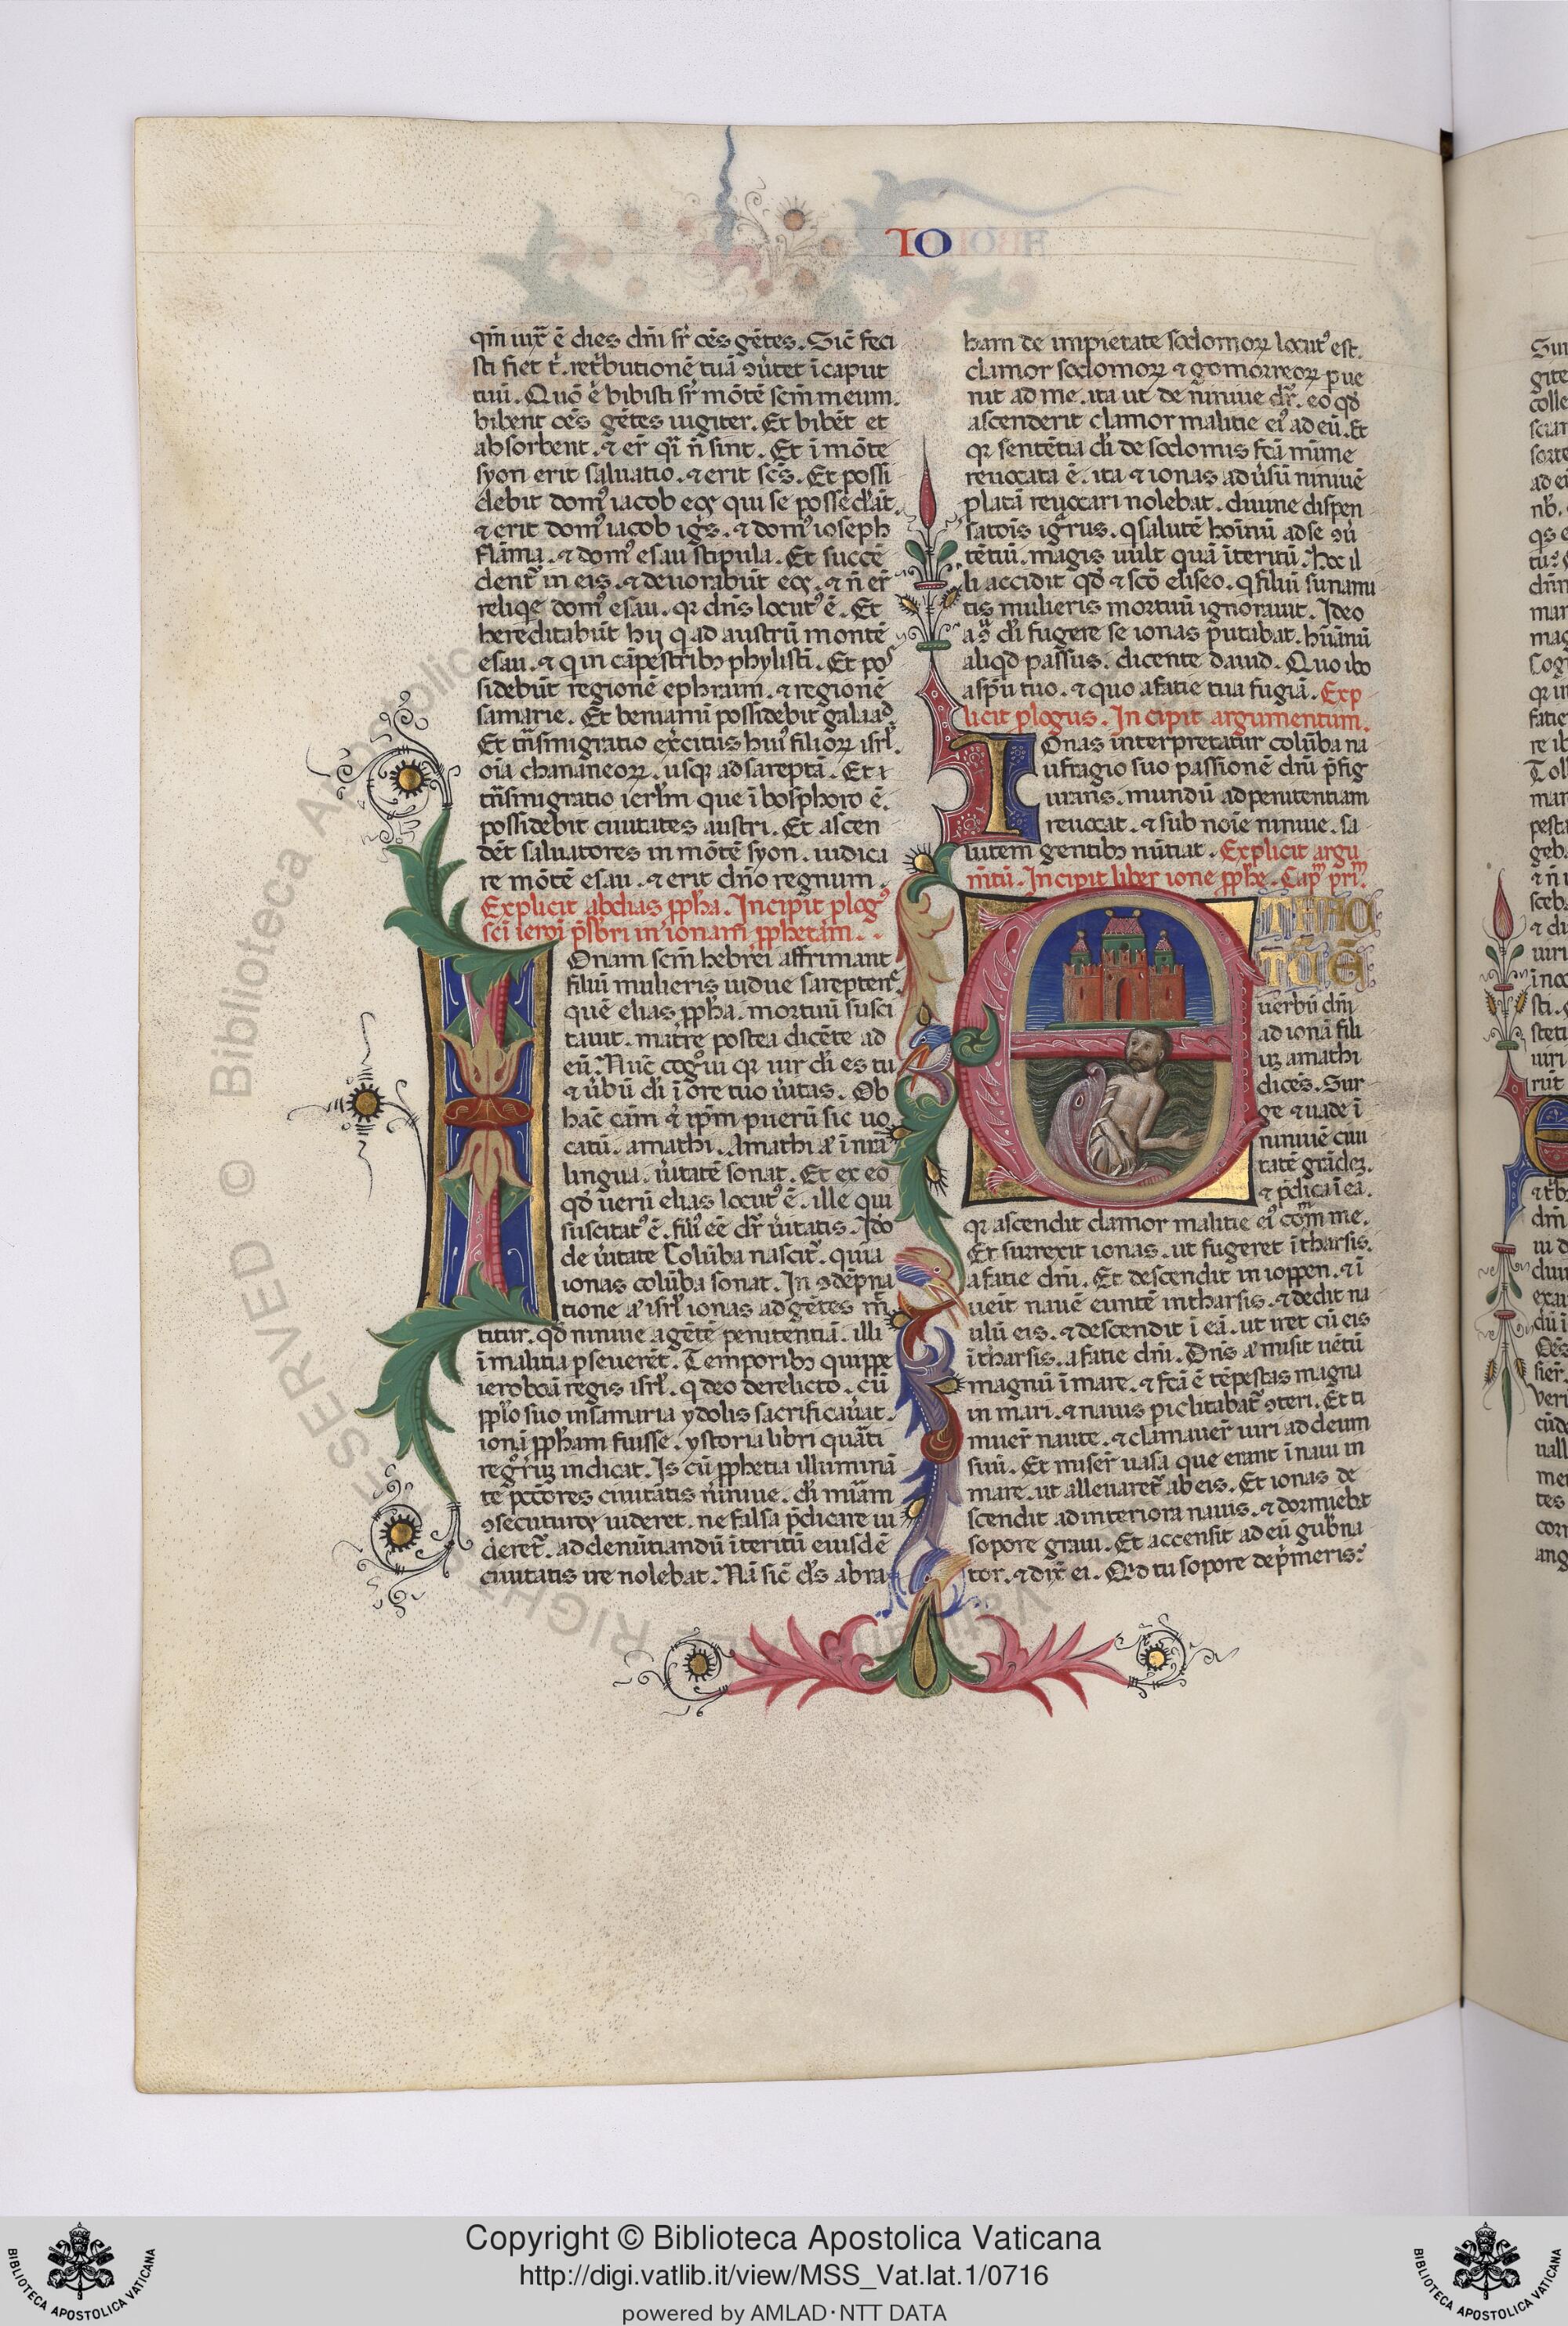 IO
qm̄ iuxͣ ē dies dn̄i sr̄ oēs gētes. Sic̄ feci
sti fiet t̄. retͥbutionē tuā ↄuͥtet ī caput
tuū. Quō ē bibisti sr̄ mōtē scm̄ meum.
bibent oēs gētes iugiter. Et bibēt et
absorbent. ⁊ er̄ qͥ n̄ sint. Et ī mōte
syon erit saluatio. ⁊ erit scs̄. Et possi
debit domꝰ iacob eoꝫ qui se possedͥāt.
⁊ erit domꝰ iacob igͥs. ⁊ domꝰ ioseph
flāma. ⁊ domꝰ esau stipula. Et succē
dent̄ in eis. ⁊ deuorabūt eos. ⁊ n̄ er̄
reliqe domꝰ esau. qꝛ dn̄s locutꝰ ē. Et
hereditabūt hij q̄ ad austrū montē
esau. ⁊ q̄ in cāpestribꝫ phylistī. Et pos
sidebūt regionē ephraim. ⁊ regionē
samarie. Et beniamī possidebit galaad.
Et tn̄smigratio exͥcitus huiꝰ filioꝝ isrl̄.
oīa chananeoꝝ. usqꝫ ad sareptā. Et
tn̄smigratio ierlm̄ que ī bosphoro ē.
possidebit ciuitates austri. Et ascen
dēt saluatores in mōtē syon. iudica
re mōtē esau. ⁊ erit dn̄o regnum.
Explicit abdias ꝓph̄a. Incipit plogꝰ
sc̄i ieroī p̄sbri in ionam ꝓphetam.
Onam scm̄ hebrei affirmant
filiū mulieris uidue sareptenͤ.
quē elias ꝓph̄a. mortuū susci
tauit. matre postea dicēte ad
eū. Nuc̄ cogͦui qꝛ uir dͥi es tu
⁊ uͥbū dͥi ī ore tuo uͥitas. Ob
hac̄ cām ⁊ ip̄m puerū sic uo
catū. amathi. Amathi aͤ ī nr̄a
lingua. uͥitatē sonat. Et ex eo
qd̄ uerū elias locutꝰ ē. ille qui
suscitatꝰ ē. filiꝰ eē dr̄ uͥitatis. Ido
de uͥitate Colūba nascit̄. quia
ionas colūba sonat. In ↄdēpna
tione aͤ isrl̄ ionas ad gētes m̄
titur. qd̄ niniue agētē penitentiā. illi
ī malitia pseuerēt. Temporibꝫ quippe
ieroboā regis isrl̄. q̄ deo derelicto. cū
ppl̄o suo in samaria ydolis sacrificauͥat.
ionā ꝓph̄am fuisse. ystoria libri quāti
regͦꝝ indicat. Is cū ꝓphetia illuminā
te pctōres ciuitatis niniue. dͥi miām
ↄsecuturos uideret. ne falsa p̄dicare ui
deret̄. ad denūtiandū īteritū eiusdē
ciuitatis ire nolebat. Nā sic̄ dͥs abra
ham de impietate sodomoꝝ locutꝰ est.
clamor sodomoꝝ ⁊ gomorreoꝝ pue
nit ad me. ita ut de niniue dr̄. eo qd̄
ascenderit clamor malitie eiꝰ ad eū. Et
qꝛ sentētia dͥi de sodomis fc̄a mīme
reuocata ē. ita ⁊ ionas ad uͥsū niniuē
platā reuocari nolebat. diuine dispen
satoīs igͣrus. q̄ salutē hoīnū ad se ↄuͥ
tētiū. magis uult quā īteritū. Hoc il
li accidit qd̄ ⁊ sc̄o eliseo. q̄ filiū sunami
tis mulieris mortuū ignorauit. Ideo
dͥi fugere se ionas putabat. hūānū
aliqd passus. dicente dauid. Quo ibo
a spū tuo. ⁊ quo a fatie tua fugiā. Exp
licit plogus. Incipit argumentum.
IOnas interpretatur colūba na
ufragio suo passionē dn̄i p̄fig
urans. mundū ad penitentiam
reuocat. ⁊ sub noīe niniue. sa
lutem gentibꝫ nūtiat. Explicit argu
m̄tū. Incipit liber ione ꝓph̄e. Capͫ prīͫ.
ET FAC
TŪ Ē
uerbū dn̄i
ad ionā fili
uꝫ amathi
dicēs. Sur
ge ⁊ uade ī
niniuē ciui
tatē grādeꝫ.
⁊ p̄dica ī ea.
qꝛ ascendit clamor malitie eiꝰ corͫ me.
Et surrexit ionas. ut fugeret ī tharsis.
a fatie dn̄i. Et descendit in ioppen. ⁊ ī
ueit nauē euntē in tharsis. ⁊ dedit na
ulū eis. ⁊ descendit ī eā. ut iret cū eis
ī tharsis. a fatie dn̄i. Dn̄s aͤ misit uētū
magnū ī mare. ⁊ fc̄ā ē tēpestas magna
in mari. ⁊ nauis piclitabat̄ ↄteri. Et ti
muer̄ naute. ⁊ clamauer̄ uiri ad deum
suū. Et miser̄ uasa que erant ī naui in
mare. ut alleuaret̄ ab eis. Et ionas de
scendit ad interiora nauis. ⁊ dormiebat
sopore graui. Et accessit ad eū gubͥna
tor. ⁊ dix̄ ei. Qͥd tu sopore depͥmeris?
Biblioteca Apostolica Vaticana
ALL RIGHTS RESERVED ©
Copyright © Biblioteca Apostolica Vaticana
http://digi.vatlib.it/view/MSS_Vat.lat.1/0716
powered by AMLAD·NTT DATA
BIBLIOTECA APOSTOLICA VATICANA
BIBLIOTECA APOSTOLICA VATICANA